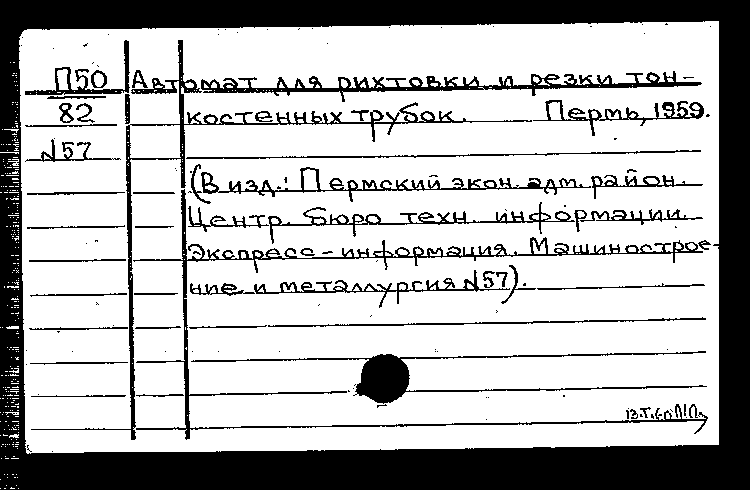 П50 Автомат для рихтовки и резки тон-
82 костенных трубок. Пермь, 1959.
№57
(В изд.: Пермский экон. адм. район.
Центр. бюро техн. информации.
Экспресс-информация. Машинострое-
ние и металлургия №57).